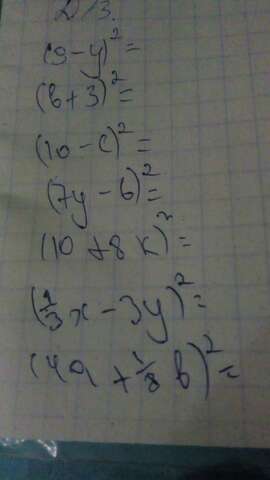 Д/З.
(9-y)²=
(b+3)²=
(10-c)²=
(7y-6)²=
(10+8k)²=
(1/3x-3y)²=
(4a+1/8b)²=